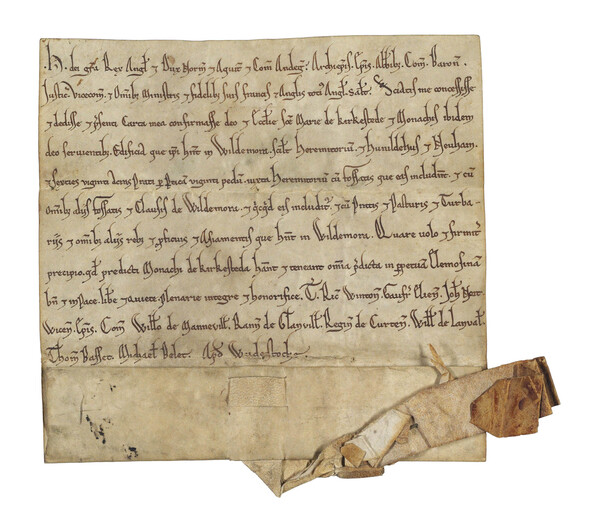 H. dei gr̃a Rex Angl̃ ⁊ Dux Norm̃ ⁊ Aquit̃ ⁊ Com̃ Andeg̃. Archiep̃is. Ep̃is. Abb̃ibꝫ. Com̃. Baroñ.
Justic̃. Vicecom̃. ⁊ Om̃ibꝫ Ministris ⁊ fidelibꝫ suis francis ⁊ Anglis toti᷒ Angl̃. Sal̃t. Sciatis me concessisse
⁊ dedisse ⁊ p̃senti Carta mea confirmasse deo ⁊ Eccl̃ie sc̃e Marie de kirkestede ⁊ Monachis ibidem
deo seruientibꝫ. Edificia que ip̃i hñt in Wildemora. scil̃t heremitoriũ. ⁊ hunildehus ⁊ Neuham.
⁊ sexcies viginti acras prati p̱ p̱ticã viginti pedũ. iuxta heremitoriũ cũ fossatis que eas includunt. ⁊ cũ
Om̃ibꝫ aliis fossatis ⁊ Clausis de Wildemora. ⁊ q̃cq̃d eis includit᷑. ⁊ cũ pratis ⁊ pasturis ⁊ Turba-
riis ⁊ om̃ibꝫ aliis rebꝫ ⁊ p̱ficuis ⁊ Aisiamentis que hñt in Wildemora. Quare uolo ⁊ firmit᷑
precipio. qd̃ predicti Monachi de kirkesteda habeant ⁊ teneant omĩa p̃dicta in p̱petuã Elemosinã
bñ ⁊ in pace. lib̃e ⁊ quiete. plenarie integre ⁊ honorifice. T̃. Ric̃ Wintoñ. Gaufr̃ Elieñ. Joh̃ Nort
wiceñ. Ep̃is. Com̃ Will̃o de Mannevill̃. Rañ de Glanvill̃. Regiñ de Curteñ. Will̃ de Lanval̃.
Thom̃ Basset. Michael̃ Belet. Apd̃ Wudestoch̃.